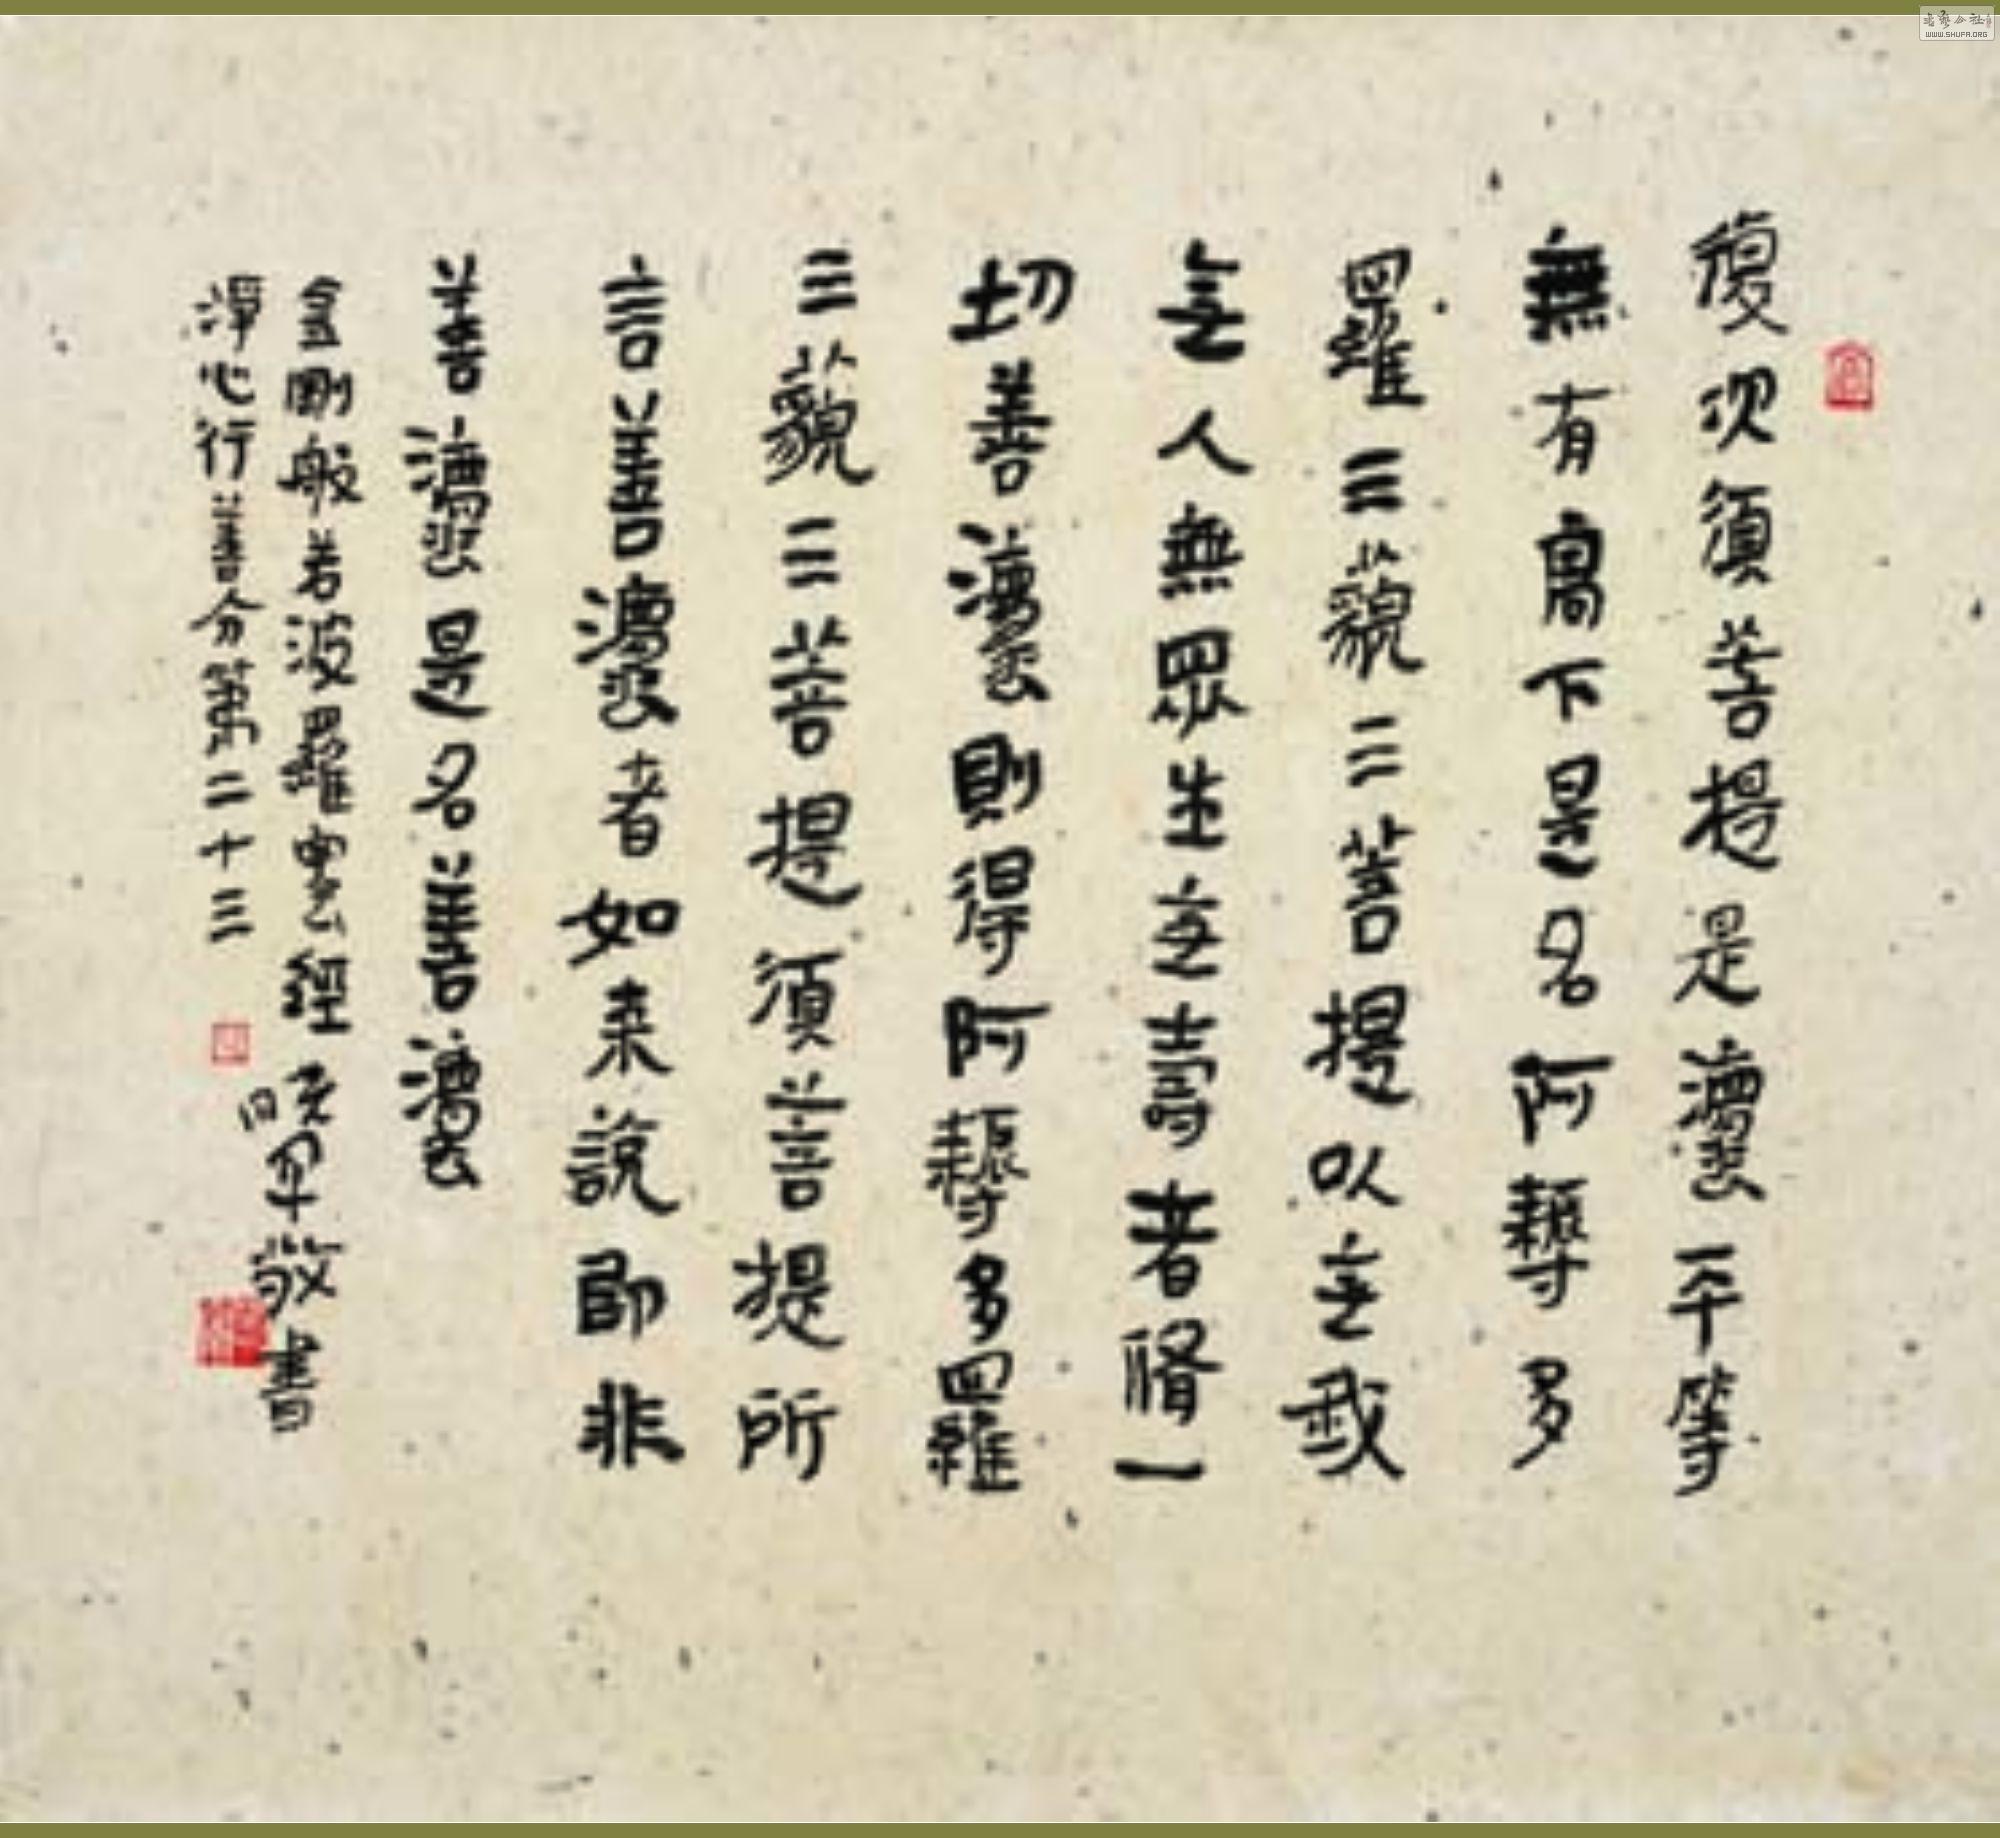 復次須菩提是灋平等
無有高下是名阿耨多
羅三藐三菩提以无我
无人無眾生无壽者脩一
切善灋則得阿耨多羅
三藐三菩提須菩提所
言善灋者如来說即非
善灋是名善灋
金剛般若波羅蜜經 敬書
淨心行善分第二十三
WWW.SHUFA.ORG